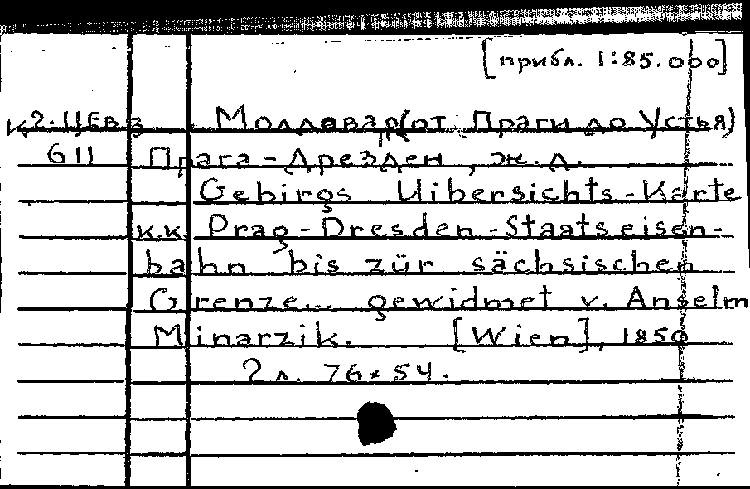 [прибл. 1:85.000]
К2-ЦЕв 3 Молдовар (от Праги до Устья)
611 Прага-Дрезден, ж.д.
Gebirgs Uibersichts-Karte
к.к. Prag-Dresden-Staatseisen-
bahn bis zür sächsischen
Grenze... gewidmet v. Anselm
Minarzik. [Wien], 1850
2 л. 76×54.